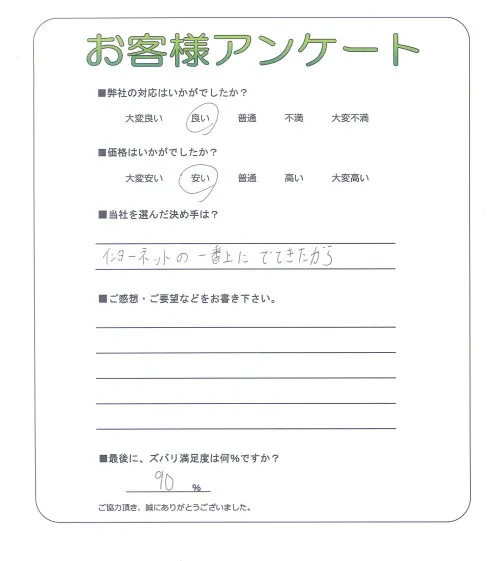 お客様アンケート
■弊社の対応はいかがでしたか？
大変良い 良い 普通 不満 大変不満
■価格はいかがでしたか？
大変安い 安い 普通 高い 大変高い
■当社を選んだ決め手は？
インターネットの一番上にでてきたから
■ご感想・ご要望などをお書き下さい。
■最後に、ズバリ満足度は何％ですか？
90 %
ご協力頂き、誠にありがとうございました。